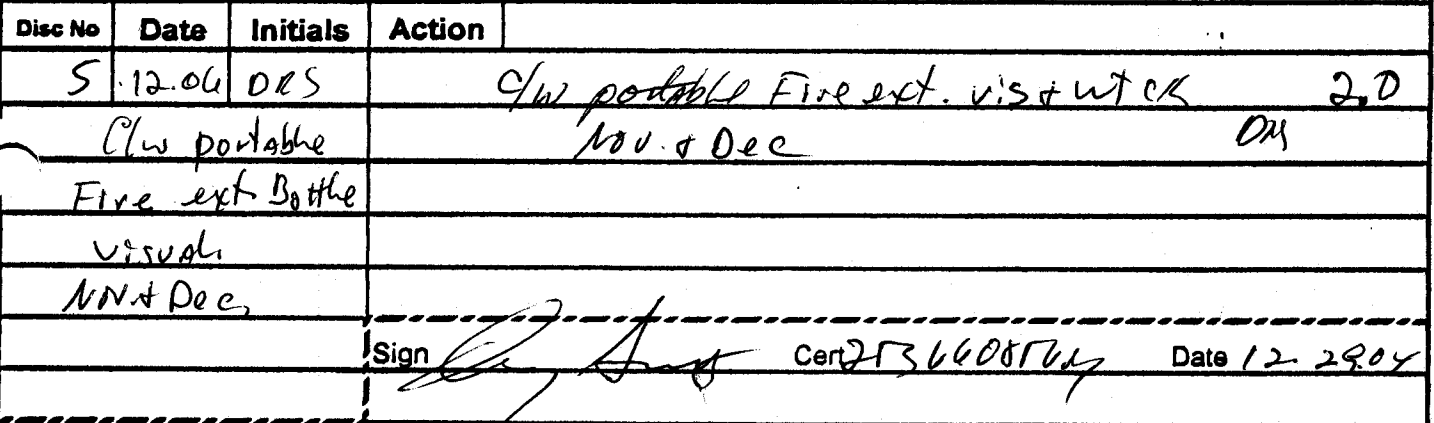 Disc No Date Initials Action
5 12.04 DRS C/W portable Fire ext. vis & wt ck 2.0
C/w portable Nov. & Dec
Fire ext Bottle
visual
Nov & Dec
Sign Cert Date 12.29.04